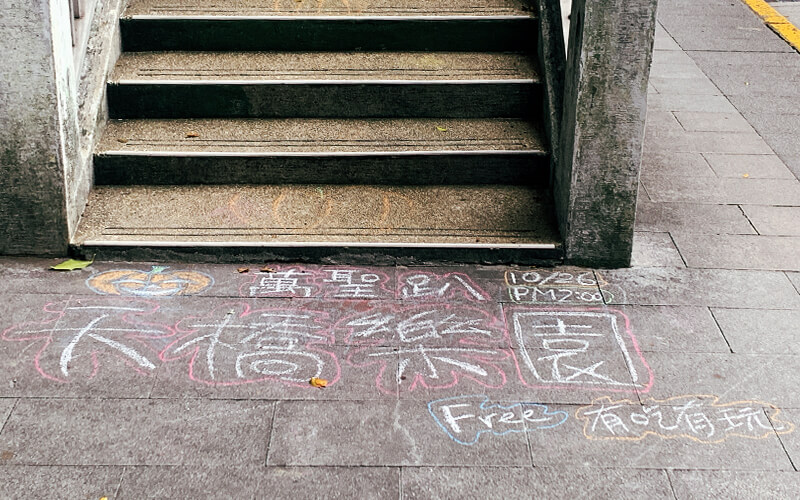 萬聖趴 10/26
PM2:00
天橋樂園
Free 有吃有玩